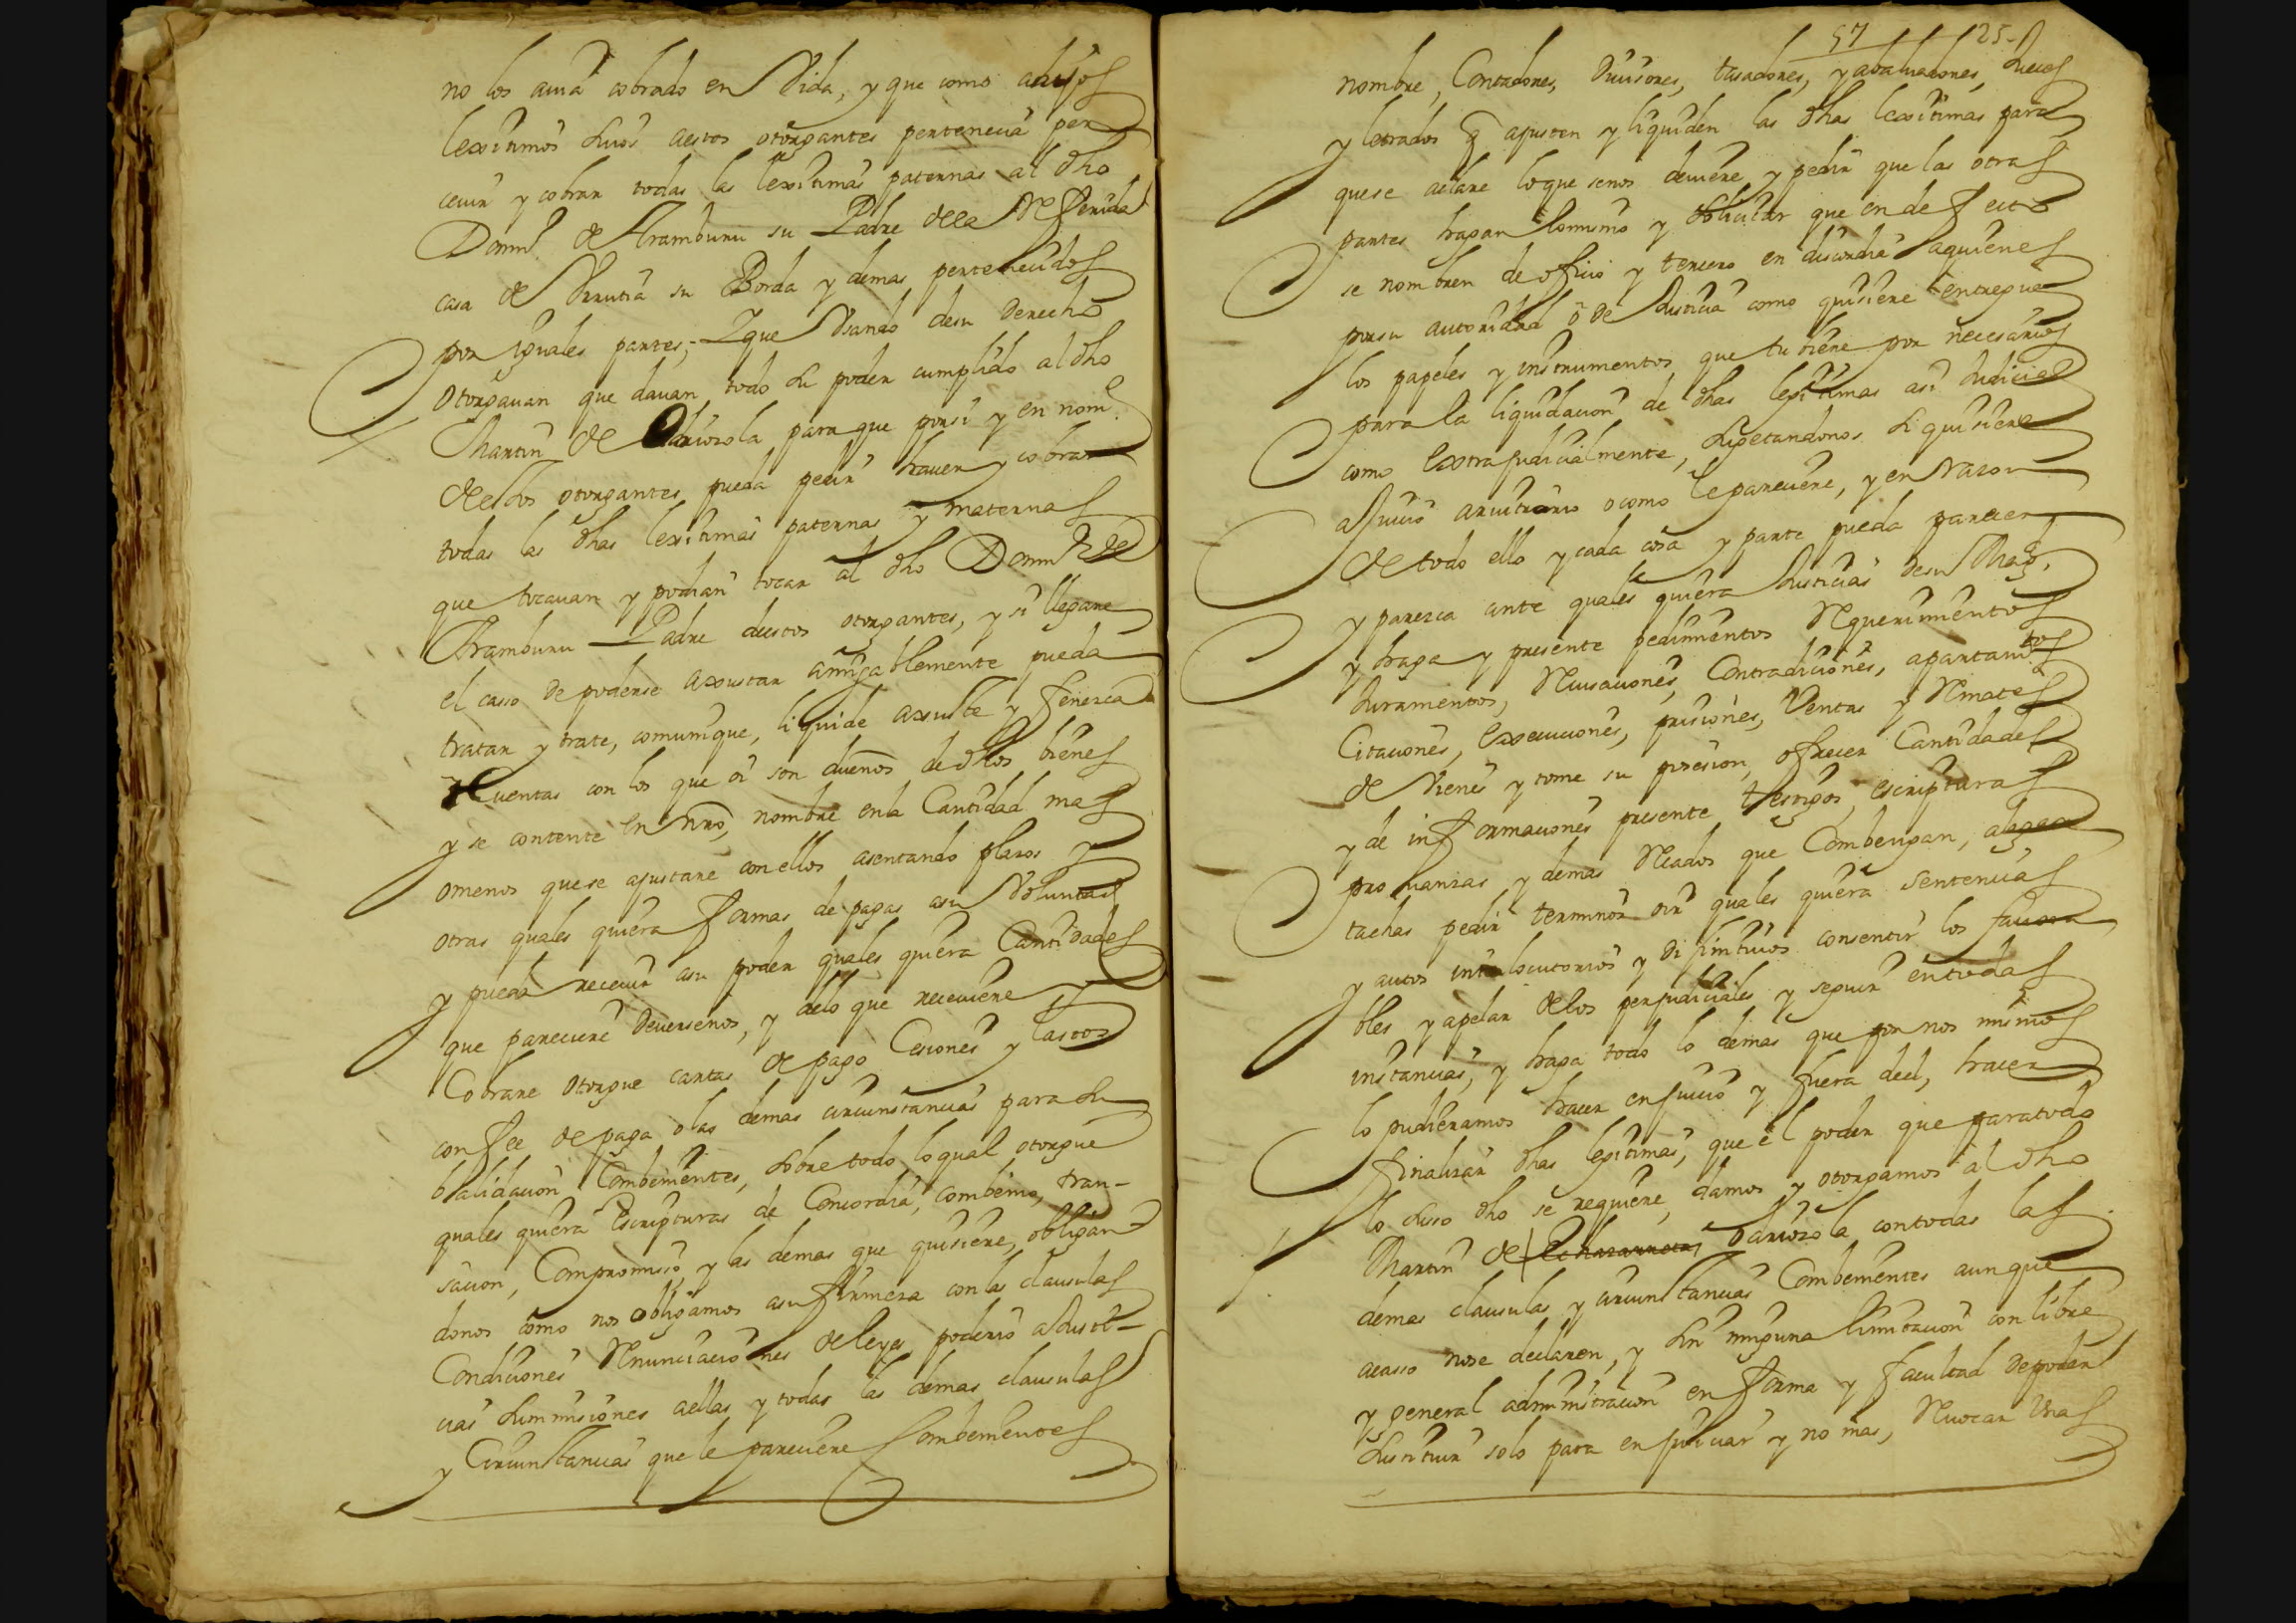 no los auia cobrado en Vida, y que como a hijos
lexitimos suios aestos otorgantes pertenecia per
ceuir y cobrar todas las lexitimas paternas al dho
Domin.º de Aramburu su Padre de la Referida
casa de Vrrutia su Borda y demas pertenecidos
por iguales partes; Y que Vsando desu derecho
otorgauan que dauan todo su poder cumplido al dho
Martin de Odriozola para que porsi y en nom.e
de ellos otorgantes pueda pedir hauer y cobrar
todas las dhas lexitimas paternas y maternas
que tocauan y podian tocar al dho Domin.º de
Aramburu Padre destos otorgantes, y si llegare
el casso de poderse axustar amigablemente pueda
tratar y trate, comunique, liquide axuste y fenezca
Cuentas con los que oi son dueños de dhos bienes
y se contente en nrõ, nombre en la Cantidad mas
omenos que se ajustare con ellos asentando plazos y
otras quales quiera formas de pagas asu Voluntad
y pueda receuir asu poder quales quiera Cantidades
que pareciere deuersenos, y delo que receuiere y
Cobrare otorgue cartas de pago Cesiones y lastos
con fee de paga o las demas circunstancias para su
balidacion Combenientes, sobre todo lo qual otorgue
quales quiera Escripturas de Concordia, combenio, tran-
sacion, Compromisso, y las demas que quisiere, obligan
donos como nos obligamos asu firmeza con las clausulas
Condiciones Renunciaciones de leyes poderio a Justi-
cias summisiones aellas y todas las demas clausulas
y Circunstancias que le pareciere Combenientes
57 25
nombre, Contadores, Diuisores, tasadores, y aualuadores, Jueces
y letrados q̃ ajusten y liquiden las dhas lexitimas para
que se aclare loque senos deuiere y pedir que las otras
partes hagan lomismo y solicitar que en defecto
se nombren de oficio y tercero en discordia aquienes
porsu autoridad o de Justicia como quisiere entregue
los papeles y instrumentos que tubiere por necesarios
para la liquidacion de dhas legitimas asi Judicial
como extrajudicialmente, sugetandonos si quisiere
a Juicio arbitrario o como le pareciere, y en Razon
de todo ello y cada cosa y parte pueda parecer
y parezca ante quales quiera Justicias desu Mag.d
y haga y presente pedimientos Requerimientos
Juramentos, Recusaciones, Contradiciones, apartamtos
Citaciones, execuciones, prisiones, Ventas y Remates
de Vienes y tome su posesion, ofrecer Cantidades
y de informaciones presente testigos, escripturas
prouanzas y demas Recados que Combengan, alegar
tachas pedir terminos oir quales quiera sentencias
y autos interlocutorios y difinitiuos consentir los fauora
bles y apelar de los perjudiciales y seguir en todas
instancias, y haga todo lo demas que por nos mismos
lo pudieramos hacer en juicio y fuera del, hacer
finalizar dhas legitimas, que el poder que para todo
lo suso dho se requiere, damos y otorgamos al dho
Martin de Odriozola con todas las
demas clausulas y circunstancias Combenientes aunque
acasso nose declaren, y sin ninguna limitacion con libre
y general administracion en forma y facultad depoder
sustituir solo para en juiciar y no mas, Reuocar Vnos